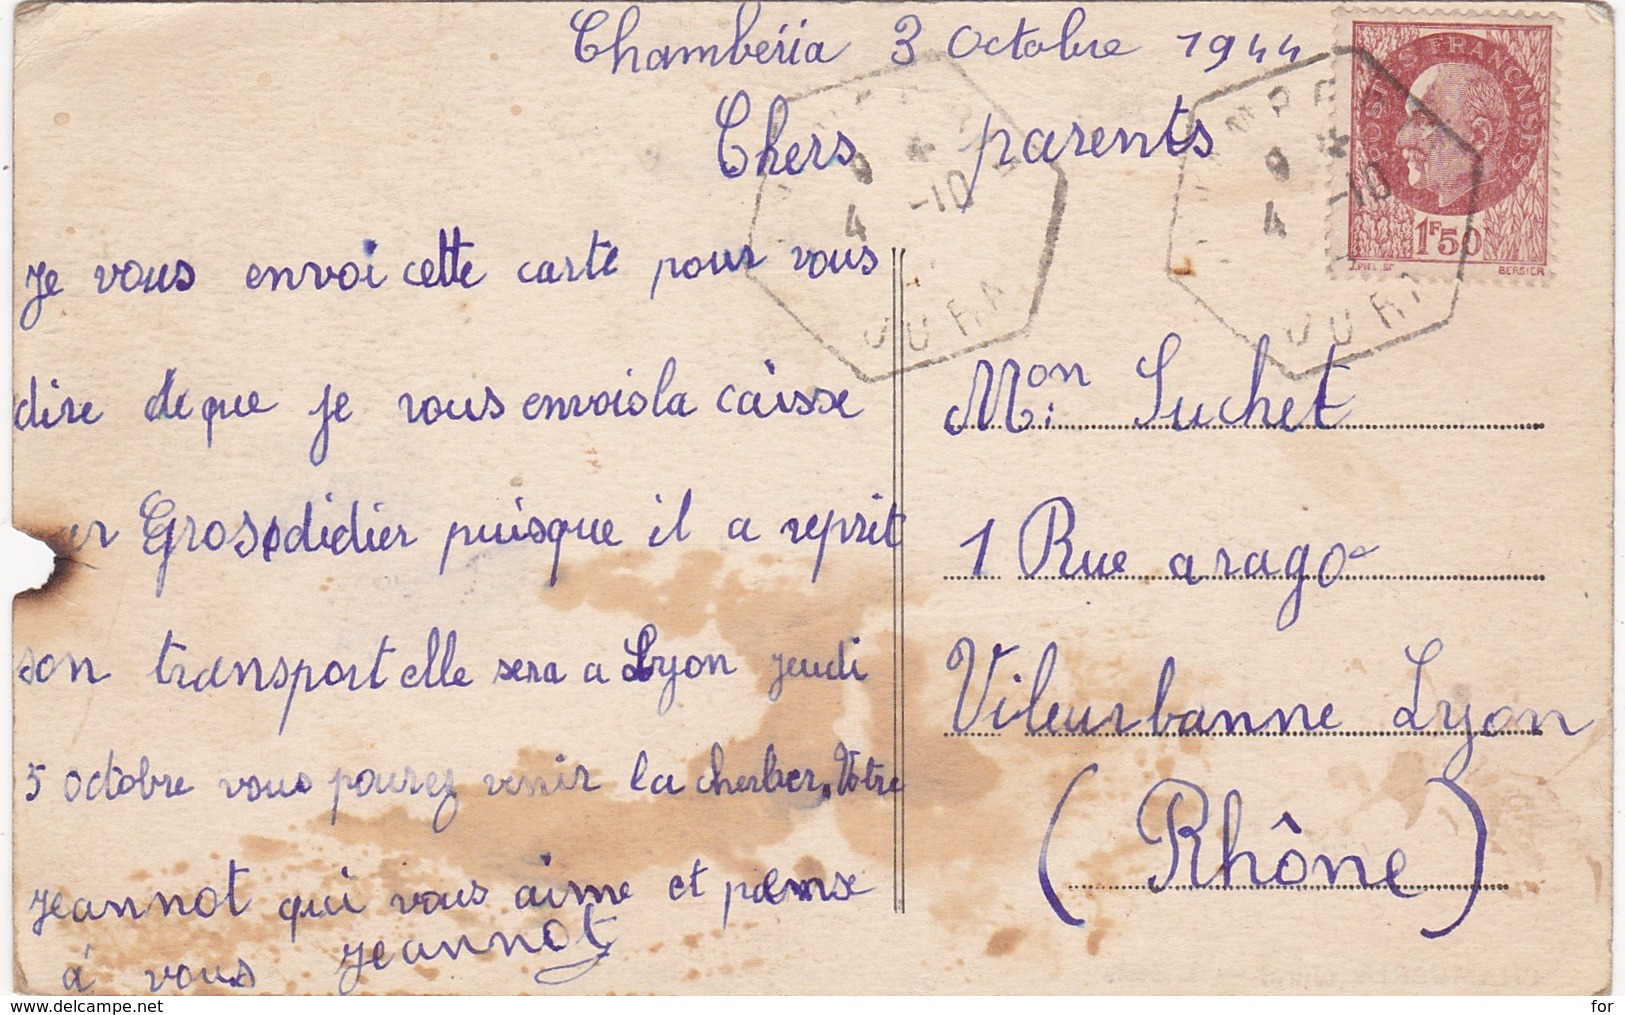 Chambéria 3 Octobre 1944
Chers parents
je vous envoi cette carte pour vous
dire de que je vous envois la caisse
Grosdidier puisque il a reprit
son transport elle sera a Lyon jeudi
5 octobre vous pourez venir la cherber. Votre
jeannot qui vous aime et pense
à vous jeannot
POSTES FRANÇAISES
1F50
J.PIEL.SC BERSIER
9 *
4 -10
JURA
9 *
4 -10
JURA
Mon Suchet
1 Rue arago
Vileurbanne Lyon
(Rhône)
for